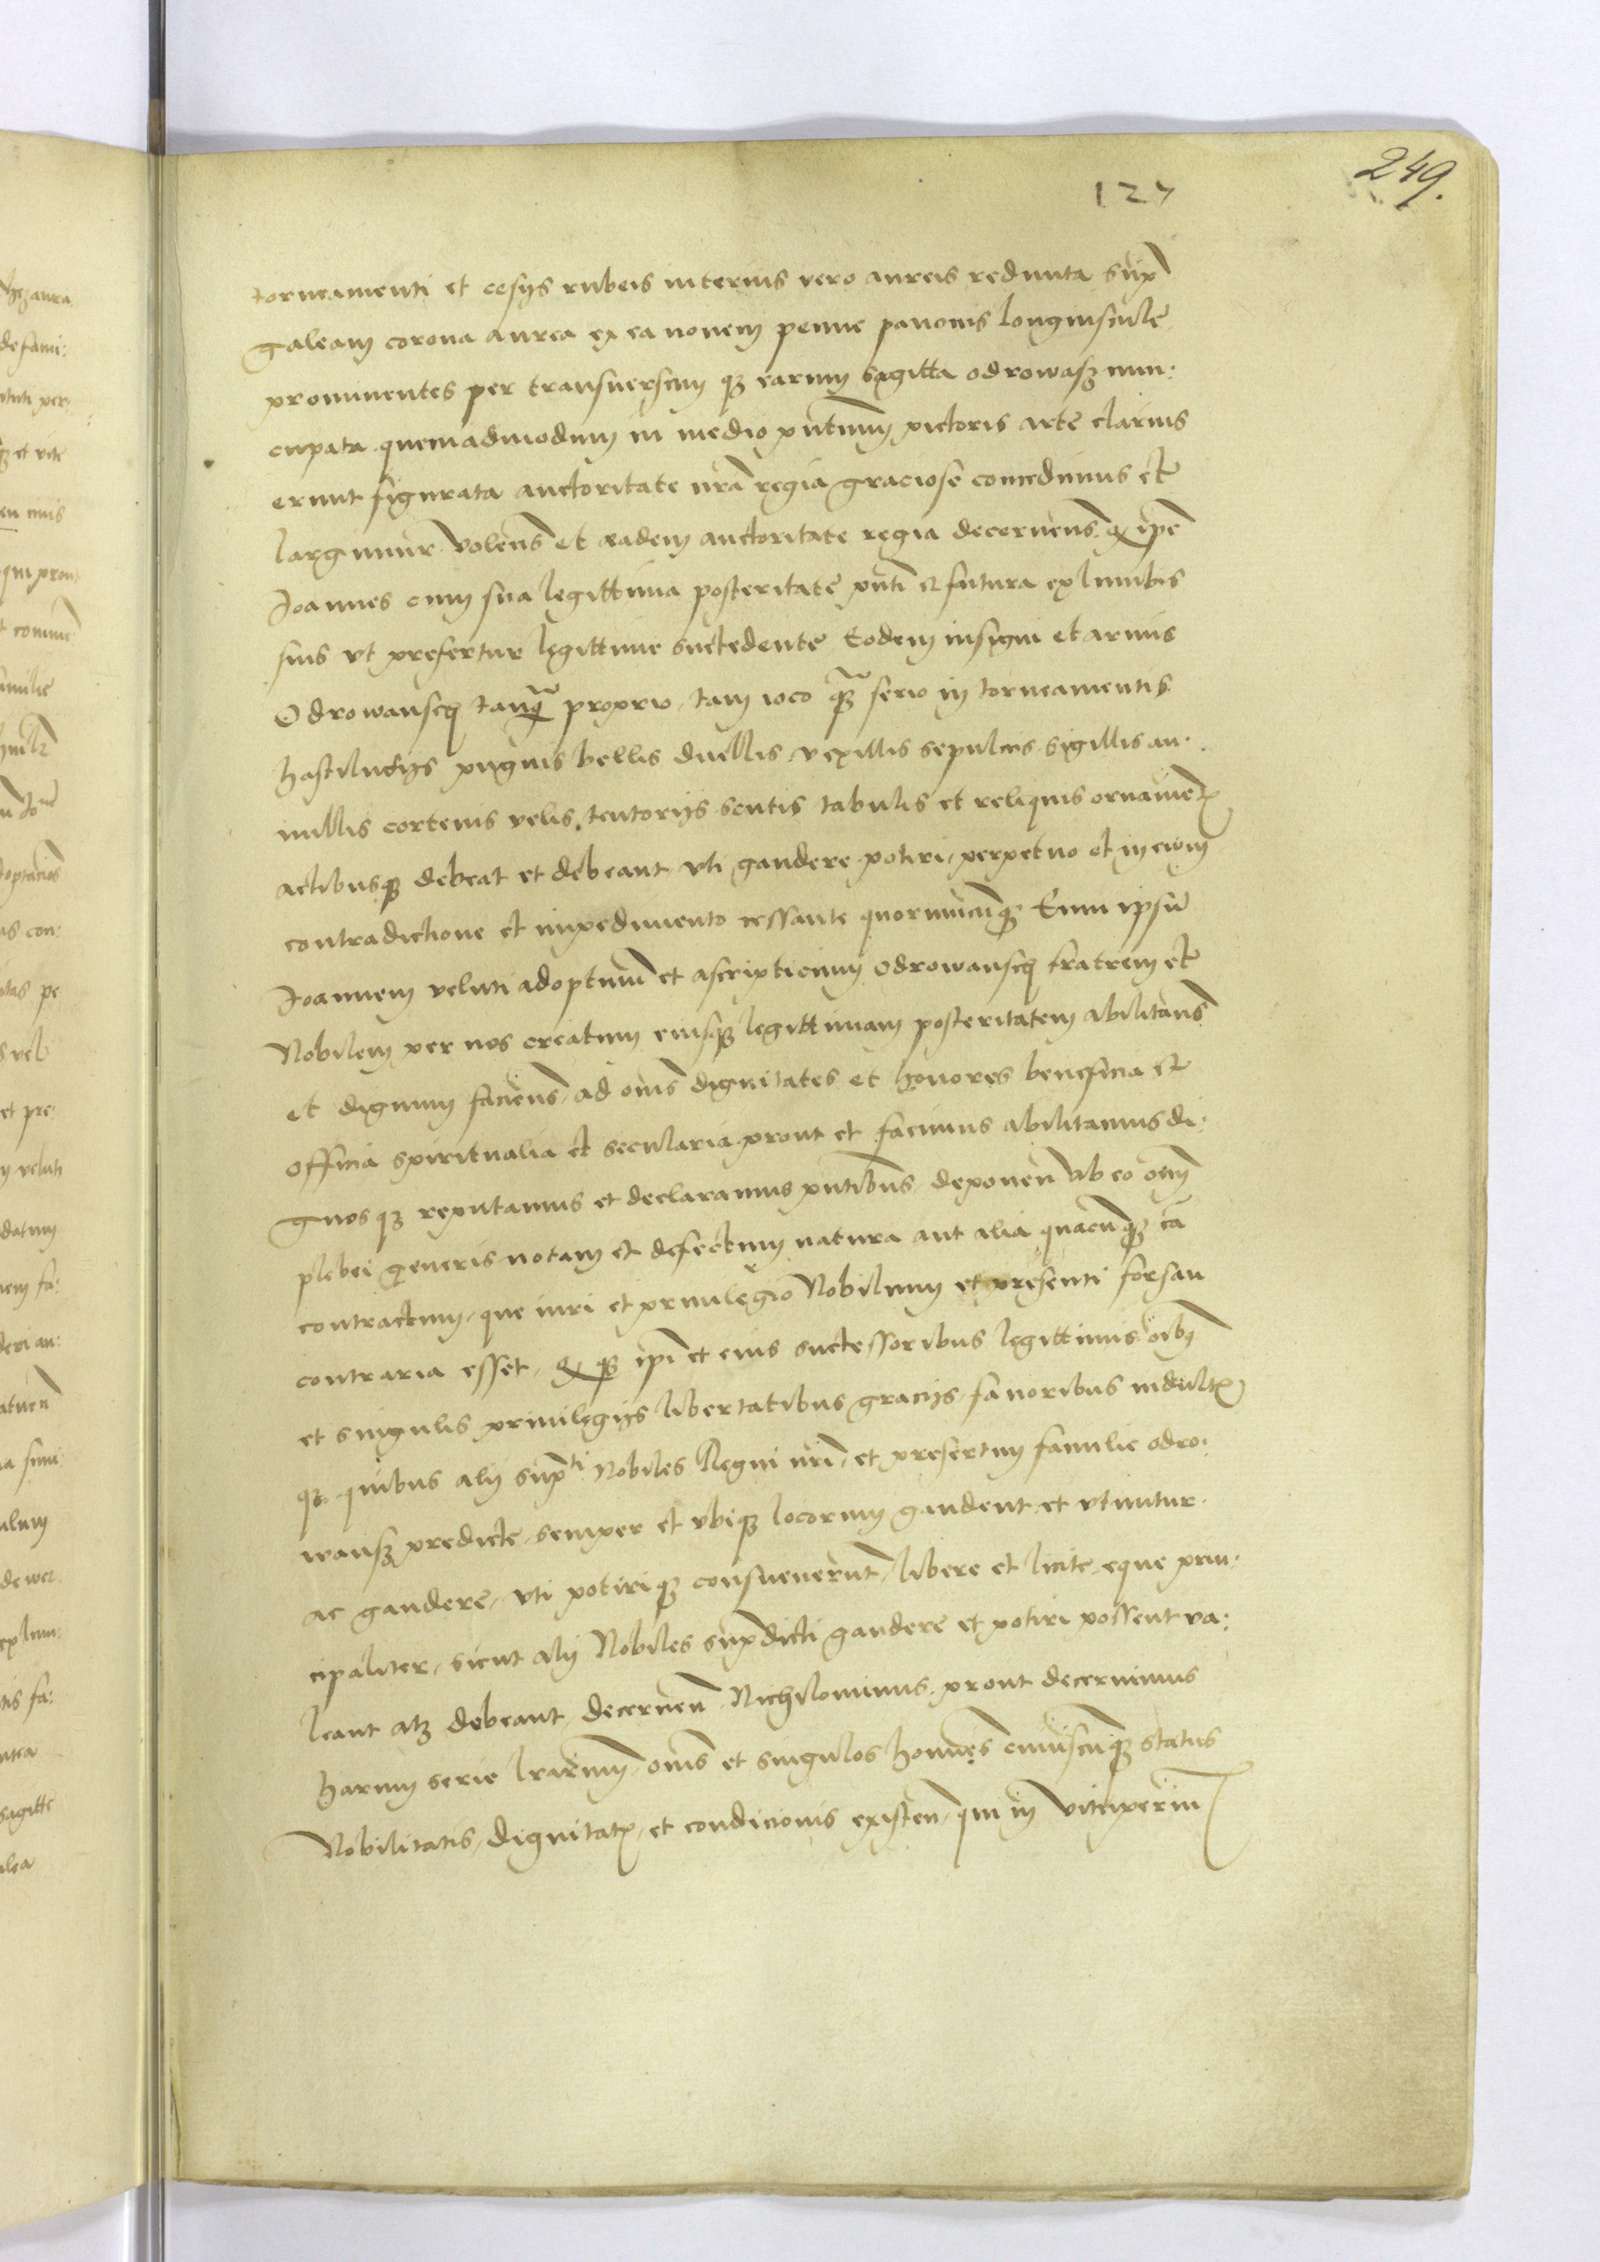 249.
127
torneamenti et cesijs rubeis interius vero aureis redimita sup
galeam corona aurea ex ea novem penne pavonis longiuscule
prominentes per transversum qz earum sagitta odrowasz nun:
cupata quemadmodum in medio pntium pictoris arte clarius
erunt figurata auctoritate nra regia graciose concedimus et
largimur volens et eadem auctoritate regia decernens q ipe
Joannes cum sua legittima posteritate pnti et futura ex lumbis
suis vt prefertur legittime succedente Eodem insigni et armis
Odrowansch tanq proprio, tam ioco qz serio in torneamentis
hastiludijs pugnis bellis duellis vexillis sepulcris sigillis an:
nullis cortenis velis tentorijs scutis tabulis et reliquis ornamet
actibusqz debeat et debeant vti gaudere potiri, perpetuo et in evum
contradictione et impedimento cessante quorumcunqz Eum ipsu
Joannem veluti adoptium et ascripticium odrowansch fratrem et
Nobilem per nos creatum eiusqz legittimam posteritatem abilitans
et dignum faciens, ad oms dignitates et honores beneficia et
officia spiritualia et secularia prout et facimus abilitamus di:
gnos qz reputamus et declaramus pntibus, deponen ab eo omem
plebei generis notam et defectum natura aut alia quacuqz ca
contractum, que iuri et privilegio Nobilium et presenti forsan
contraria esset, q qz ipi et eius successoribus legittimis oibz
et singulis privilegijs libertatibus gracijs favoribus indultis
qz quibus alij supti Nobiles Regni nri, et presertim familie odro:
wansz predicte semper et vbiqz locorum gaudent et vtuntur
ac gaudere, vti potiriqz consueverunt, libere et licite eque prin:
cipaliter, sicut alij Nobiles supdicti gaudere et potiri possent va:
leant atqz debeant, decernen Nichilominus prout decernimus
harum serie lrarum, oms et singulos homines cuiuscunqz status
Nobilitatis, dignitatis, et condicionis existen, qui in vituperium